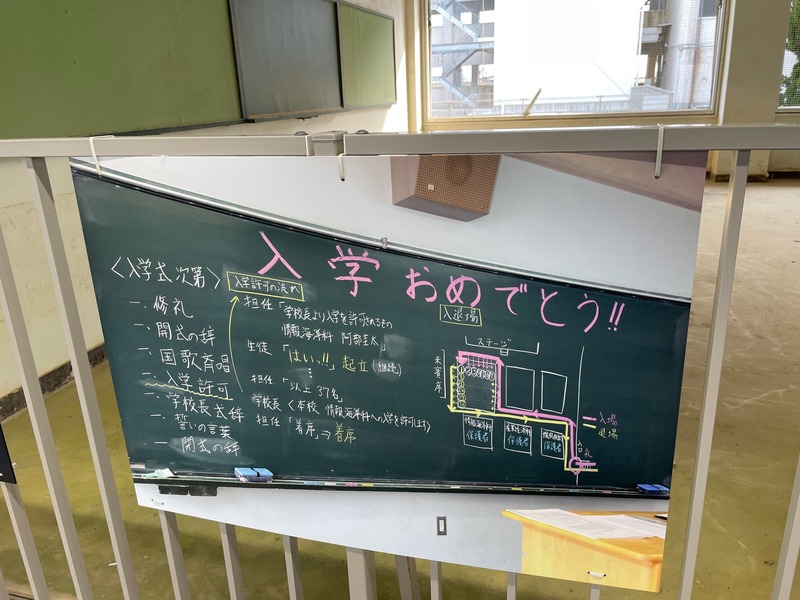 入学おめでとう!!
〈入学式次第〉
一、修礼
一、開式の辞
一、国歌斉唱
一、入学許可
一、学校長式辞
一、誓いの言葉
一、閉式の辞
入学許可の流れ
担任「学校長より入学を許可されるもの
情報海洋科 阿部圭太」
生徒「はい、!!」起立(継続)
担任「以上37名」
学校長〈本校 情報海洋科への入学を許可します〉
担任「着席」→着席
入退場
ステージ
来賓席
情報海洋科
保護者
保護者
保護者
入場
退場
入口
礼